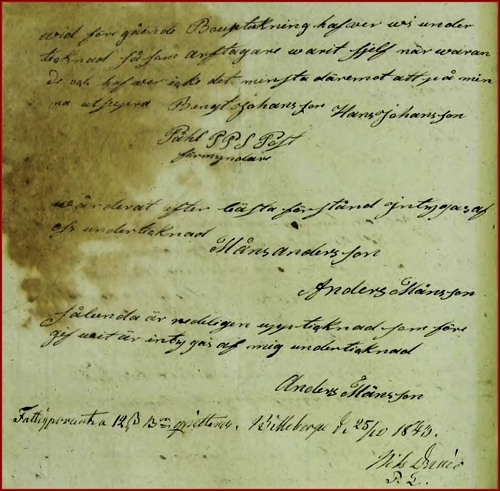 wid före gående Bouptekning hafver wi under
tieknad så som arftagare warit sjelf när waran
de och hafver icke det minsta däremot att på min
na utsepra Bengt Johansson Hans Johansson
Påhl PPS Post
förmyndare
wärderat efter bästa förstånd intygas af
oss undertieknad
Måns andersson
Anders Månsson
sålunda är redeligen upptieknad som före
gif wit är intygas af mig undertieknad
Anders Månsson
Fattigprocent a 12 β B:co qvitteras. Billeberga d. 25/10 1843.
Nils
P. L.